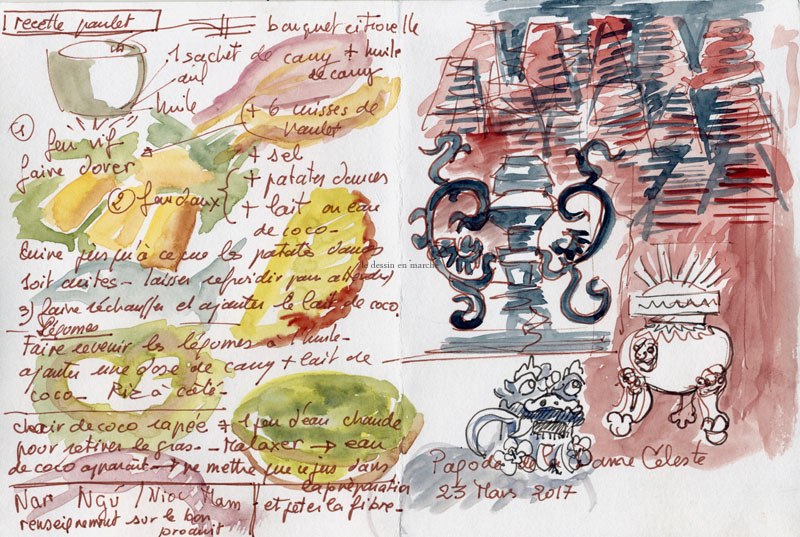 recette poulet
bouquet citronelle
1 sachet de curry + huile
de curry
ail
huile
+ 6 cuisses de
Poulet
1
feu vif
faire dorer
+ sel
+ patates douces
2 feu doux
+ lait ou eau
de coco-
Cuire jusqu'à ce que les patates douces
soit cuites - laisser refroidir pour attendre)
le dessin en marche
3) faire réchauffer et ajouter le lait de coco.
Légumes
Faire revenir les légumes à l'huile-
ajouter une dose de curry + lait de
coco - Riz à côté-
chair de coco rapée + 1 peu d'eau chaude
pour retirer le gras- Malaxer → eau
de coco apparaît → ne mettre que le jus dans
la préparation
et jeter la fibre-
Nam Ngú / Nioc Mam
renseignement sur le bon
produit
Pagode Dame Céleste
23 Mars 2017